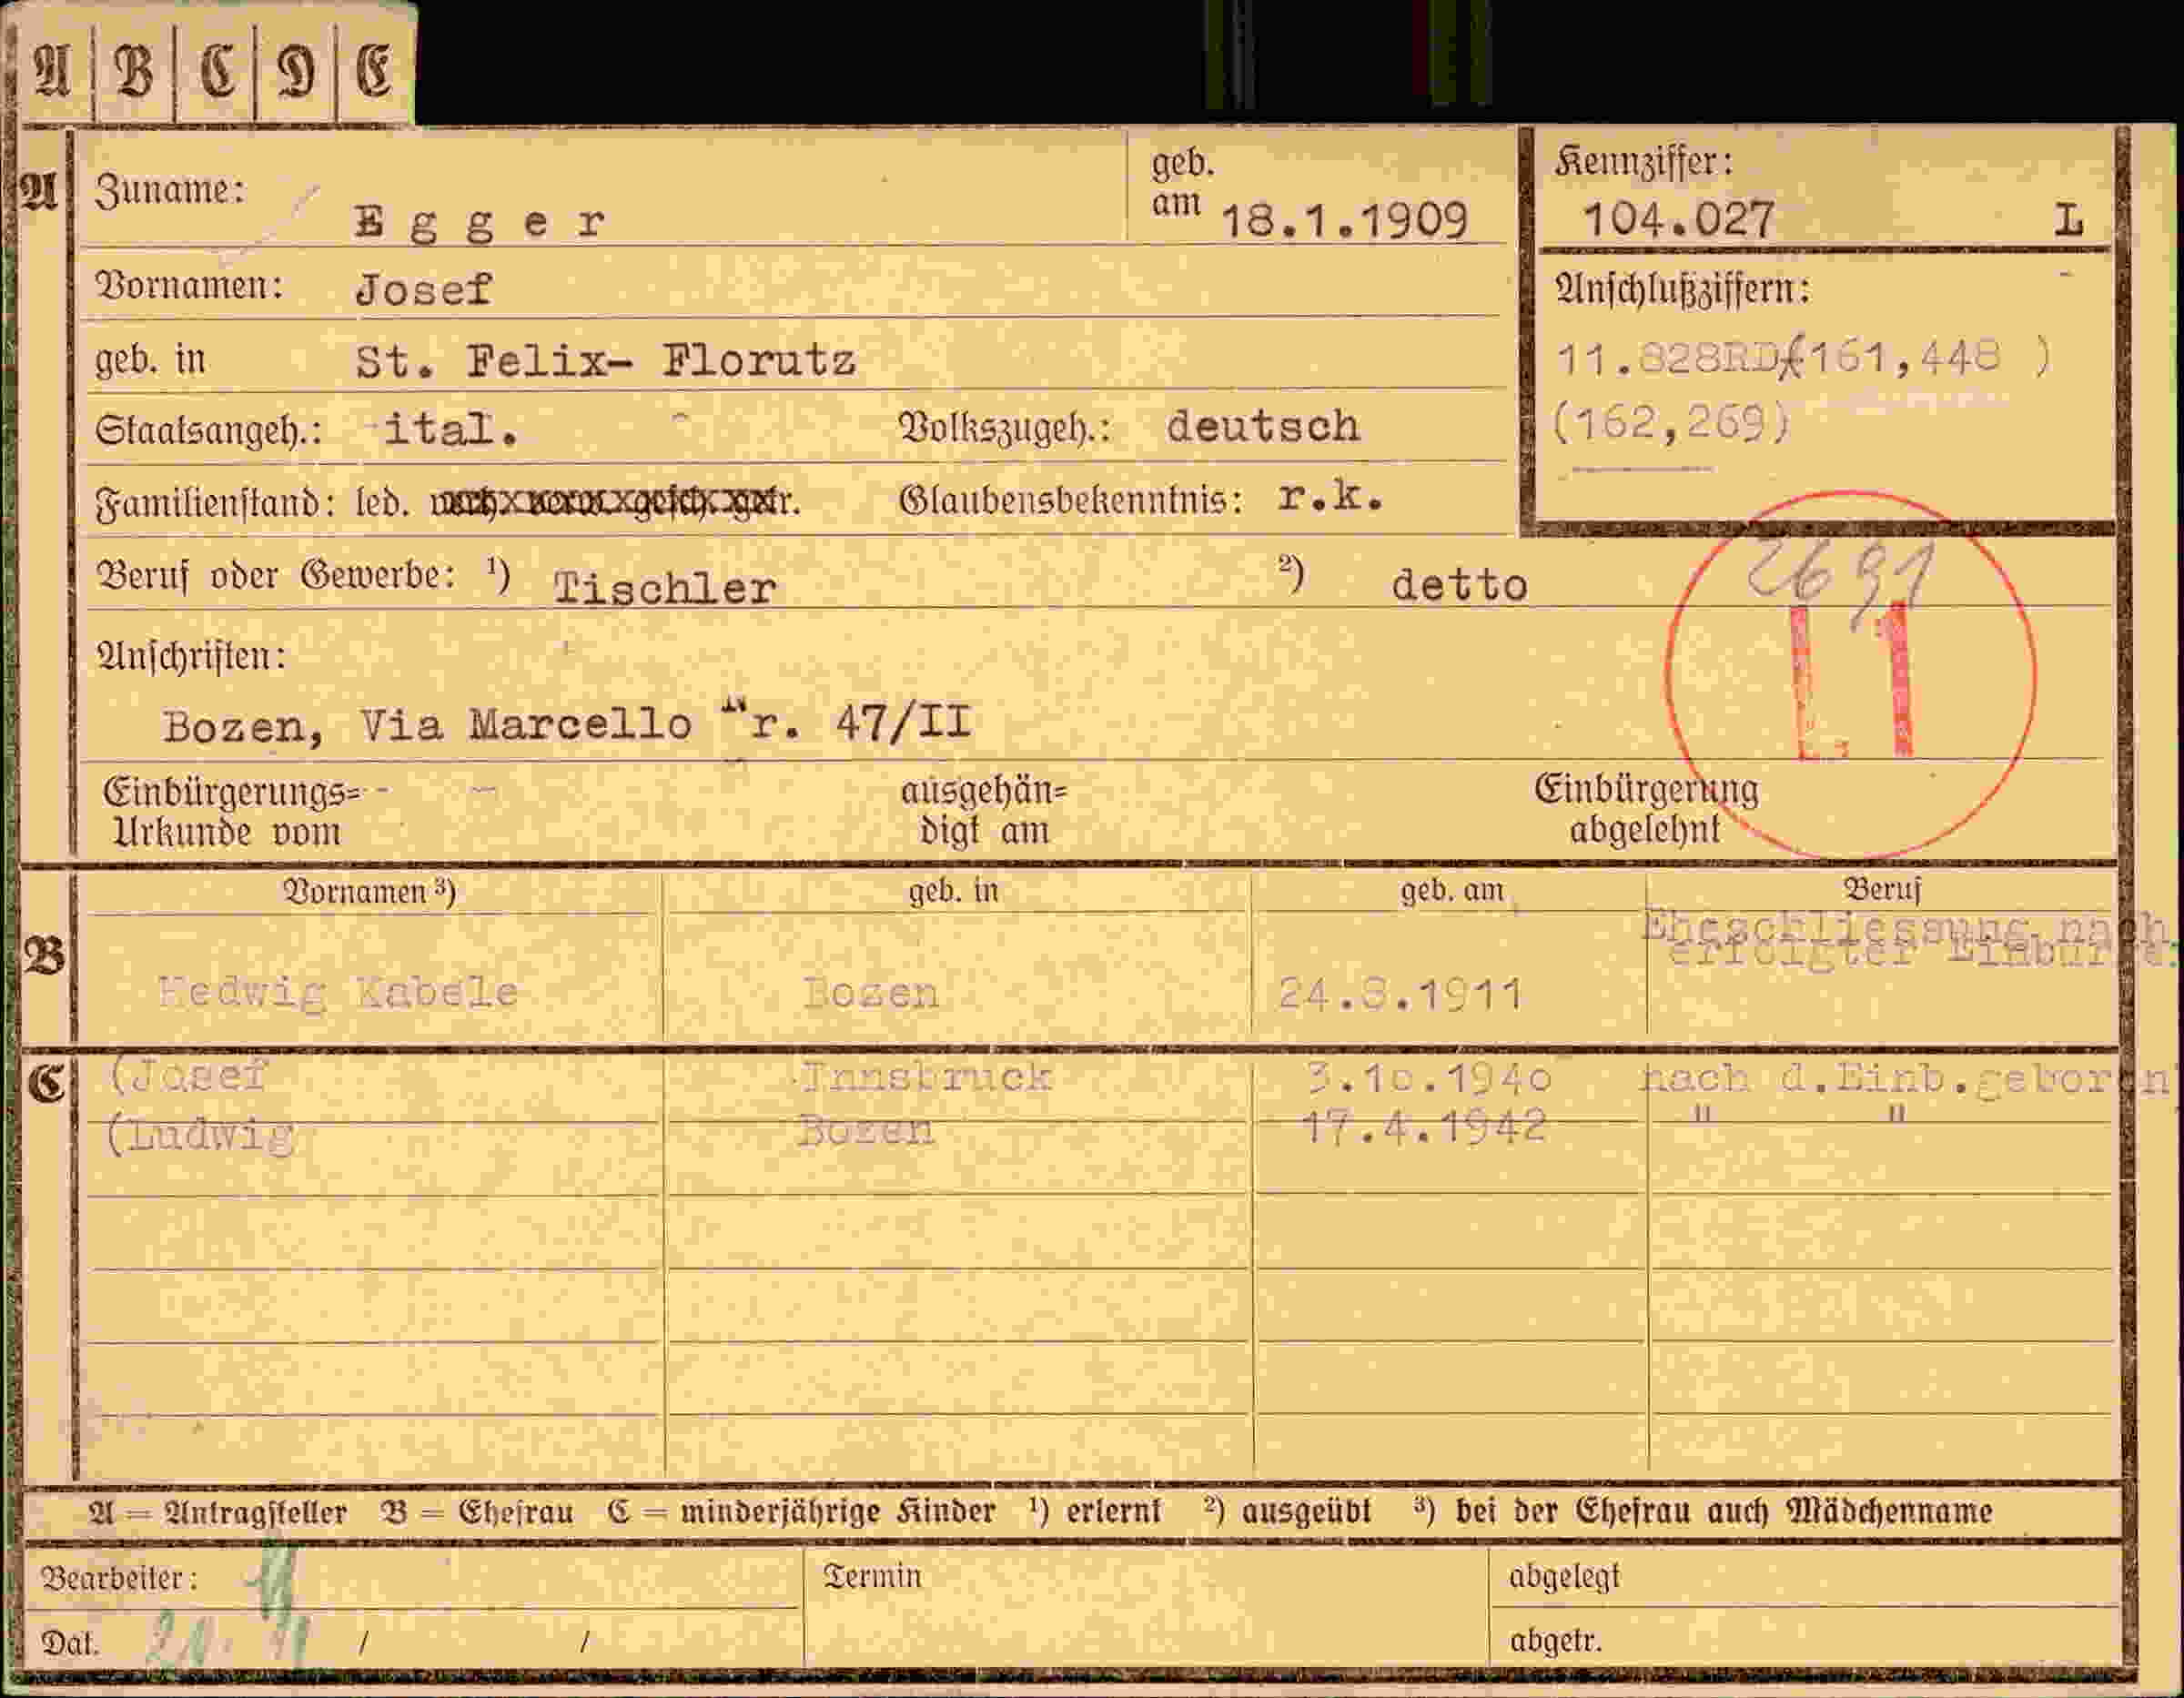 A B C D E
A
Zuname: Egger
geb. am 18.1.1909
Kennziffer: 104.027 L
Vornamen: Josef
Anschlußziffern:
11.828RD(161,448 )
(162,269)
geb. in St. Felix- Florutz
Staatsangeh.: ital. Volkszugeh.: deutsch
Familienstand: led. verh. verw. gesch. getr. Glaubensbekenntnis: r.k.
Beruf oder Gewerbe: ¹) Tischler ²) detto
2691
L1
Anschriften:
Bozen, Via Marcello Nr. 47/II
Einbürgerungs=
Urkunde vom
ausgehän=
digt am
Einbürgerung
abgelehnt
B
Vornamen ³) geb. in geb. am Beruf
Eheschliessung nach
erfolgter Einbürg.
Hedwig Kabele Bozen 24.8.1911
C
(Josef Innsbruck 3.10.1940 nach d.Einb.geboren
(Ludwig Bozen 17.4.1942 " "
A = Antragsteller B = Ehefrau C = minderjährige Kinder ¹) erlernt ²) ausgeübt ³) bei der Ehefrau auch Mädchenname
Bearbeiter: Termin abgelegt
Dat. / / abgetr.